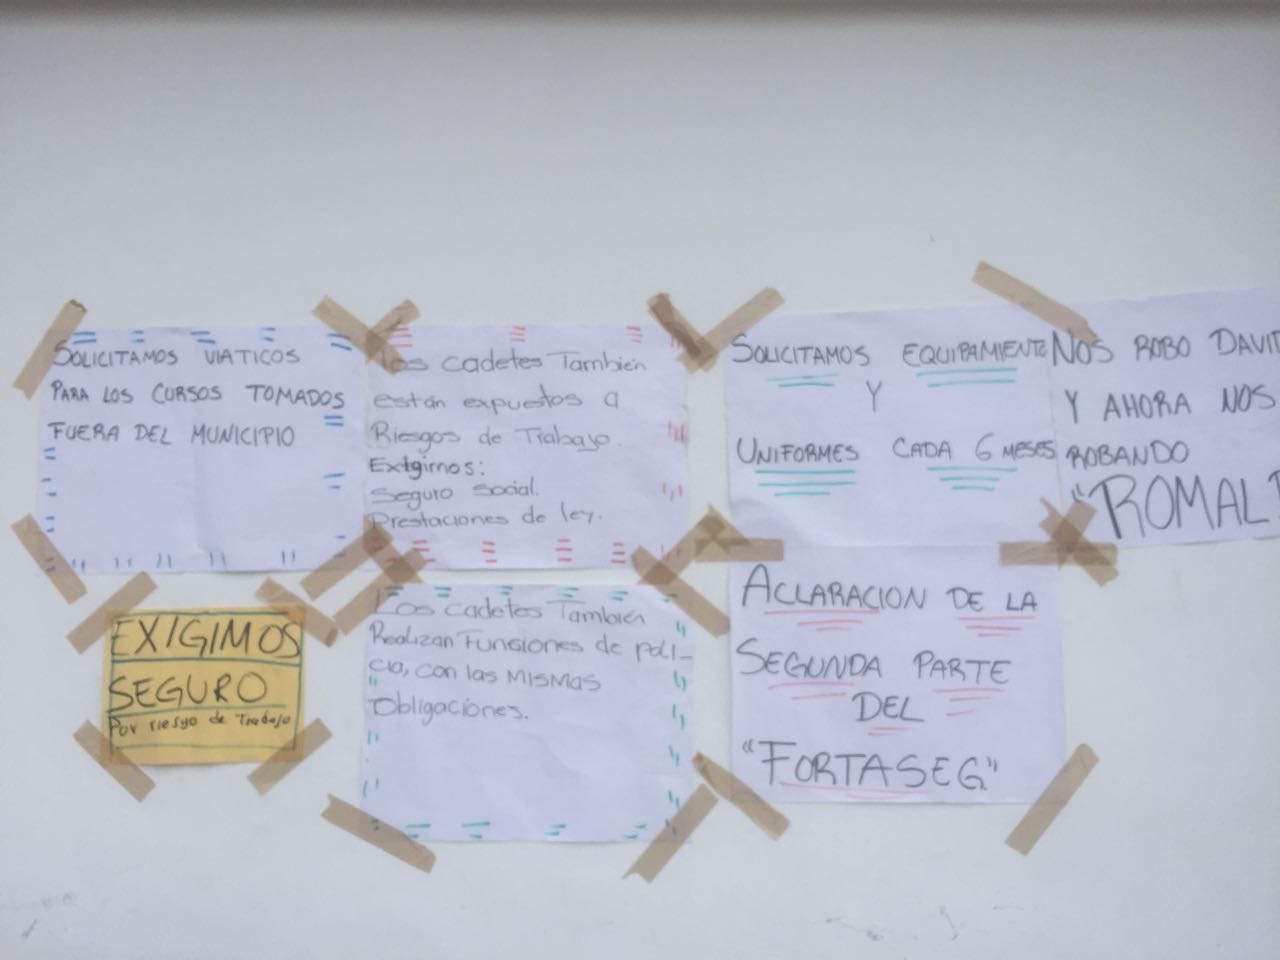 SOLICITAMOS VIATICOS
PARA LOS CURSOS TOMADOS
FUERA DEL MUNICIPIO
Los cadetes También
están expuestos a
Riesgos de Trabajo.
Exigimos:
Seguro Social.
Prestaciones de ley.
SOLICITAMOS EQUIPAMIENTO
Y
UNIFORMES CADA 6 MESES
NOS ROBO DAVI
Y AHORA NOS
ROBANDO
"ROMAL
EXIGIMOS
SEGURO
Por riesgo de Trabajo
Los cadetes También
Realizan Funsiones de poli-
cia, con las mismas
Obligaciones.
ACLARACION DE LA
SEGUNDA PARTE
DEL
"FORTASEG"